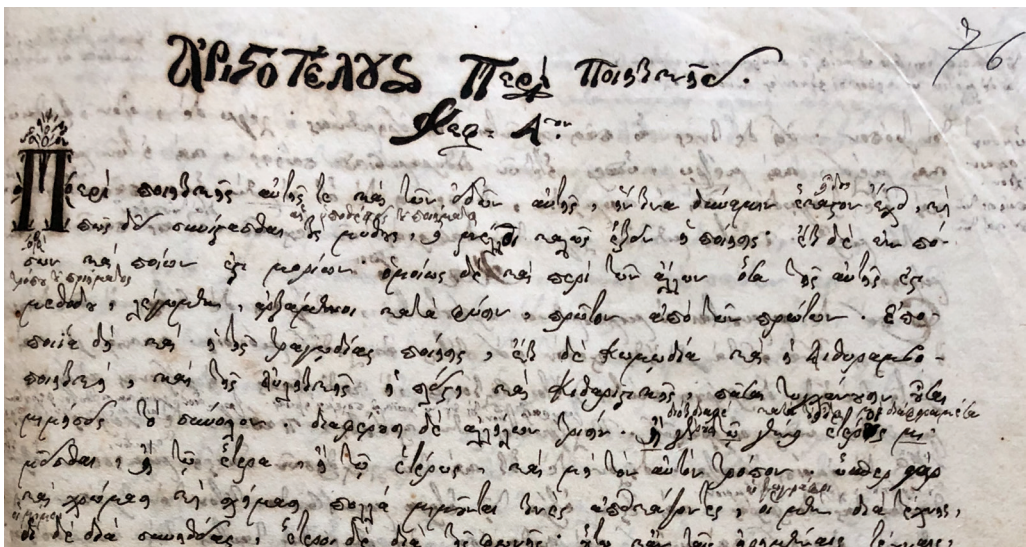 76
Ἀριστοτέλους Περὶ Ποιητικῆς.
Κεφ. Α.ον
Περὶ ποιητικῆς αὐτῆς τε καὶ τῶν εἰδῶν αὐτῆς, ἥντινα δύναμιν ἕκαστον ἔχει, καὶ
πῶς δεῖ συνίστασθαι τοὺς μύθους, εἰ μέλλοι καλῶς ἕξειν ἡ ποίησις· ἔτι δὲ ἐκ πό-
σων καὶ ποίων ἐστὶ μορίων· ὁμοίως δὲ καὶ περὶ τῶν ἄλλων ὅσα τῆς αὐτῆς ἐστι
μεθόδου, λέγωμεν, ἀρξάμενοι κατὰ φύσιν, πρῶτον ἀπὸ τῶν πρώτων. Ἐπο-
ποιΐα δὴ καὶ ἡ τῆς τραγῳδίας ποίησις, ἔτι δὲ κωμῳδία καὶ ἡ διθυραμβο-
ποιητική, καὶ τῆς αὐλητικῆς ἡ πλείστη καὶ κιθαριστικῆς, πᾶσαι τυγχάνουσιν οὖσαι
μιμήσεις τὸ σύνολον. διαφέρουσι δὲ ἀλλήλων τρισίν. ἢ γὰρ τῷ γένει ἑτέροις μι-
μεῖσθαι, ἢ τῷ ἕτερα, ἢ τῷ ἑτέρως, καὶ μὴ τὸν αὐτὸν τρόπον. ὥσπερ γὰρ
καὶ χρώμασι καὶ σχήμασι πολλὰ μιμοῦνταί τινες ἀπεικάζοντες, οἱ μὲν διὰ τέχνης,
οἱ δὲ διὰ συνηθείας, ἕτεροι δὲ διὰ τῆς φωνῆς· οὕτω κἂν ταῖς εἰρημέναις τέχναις,